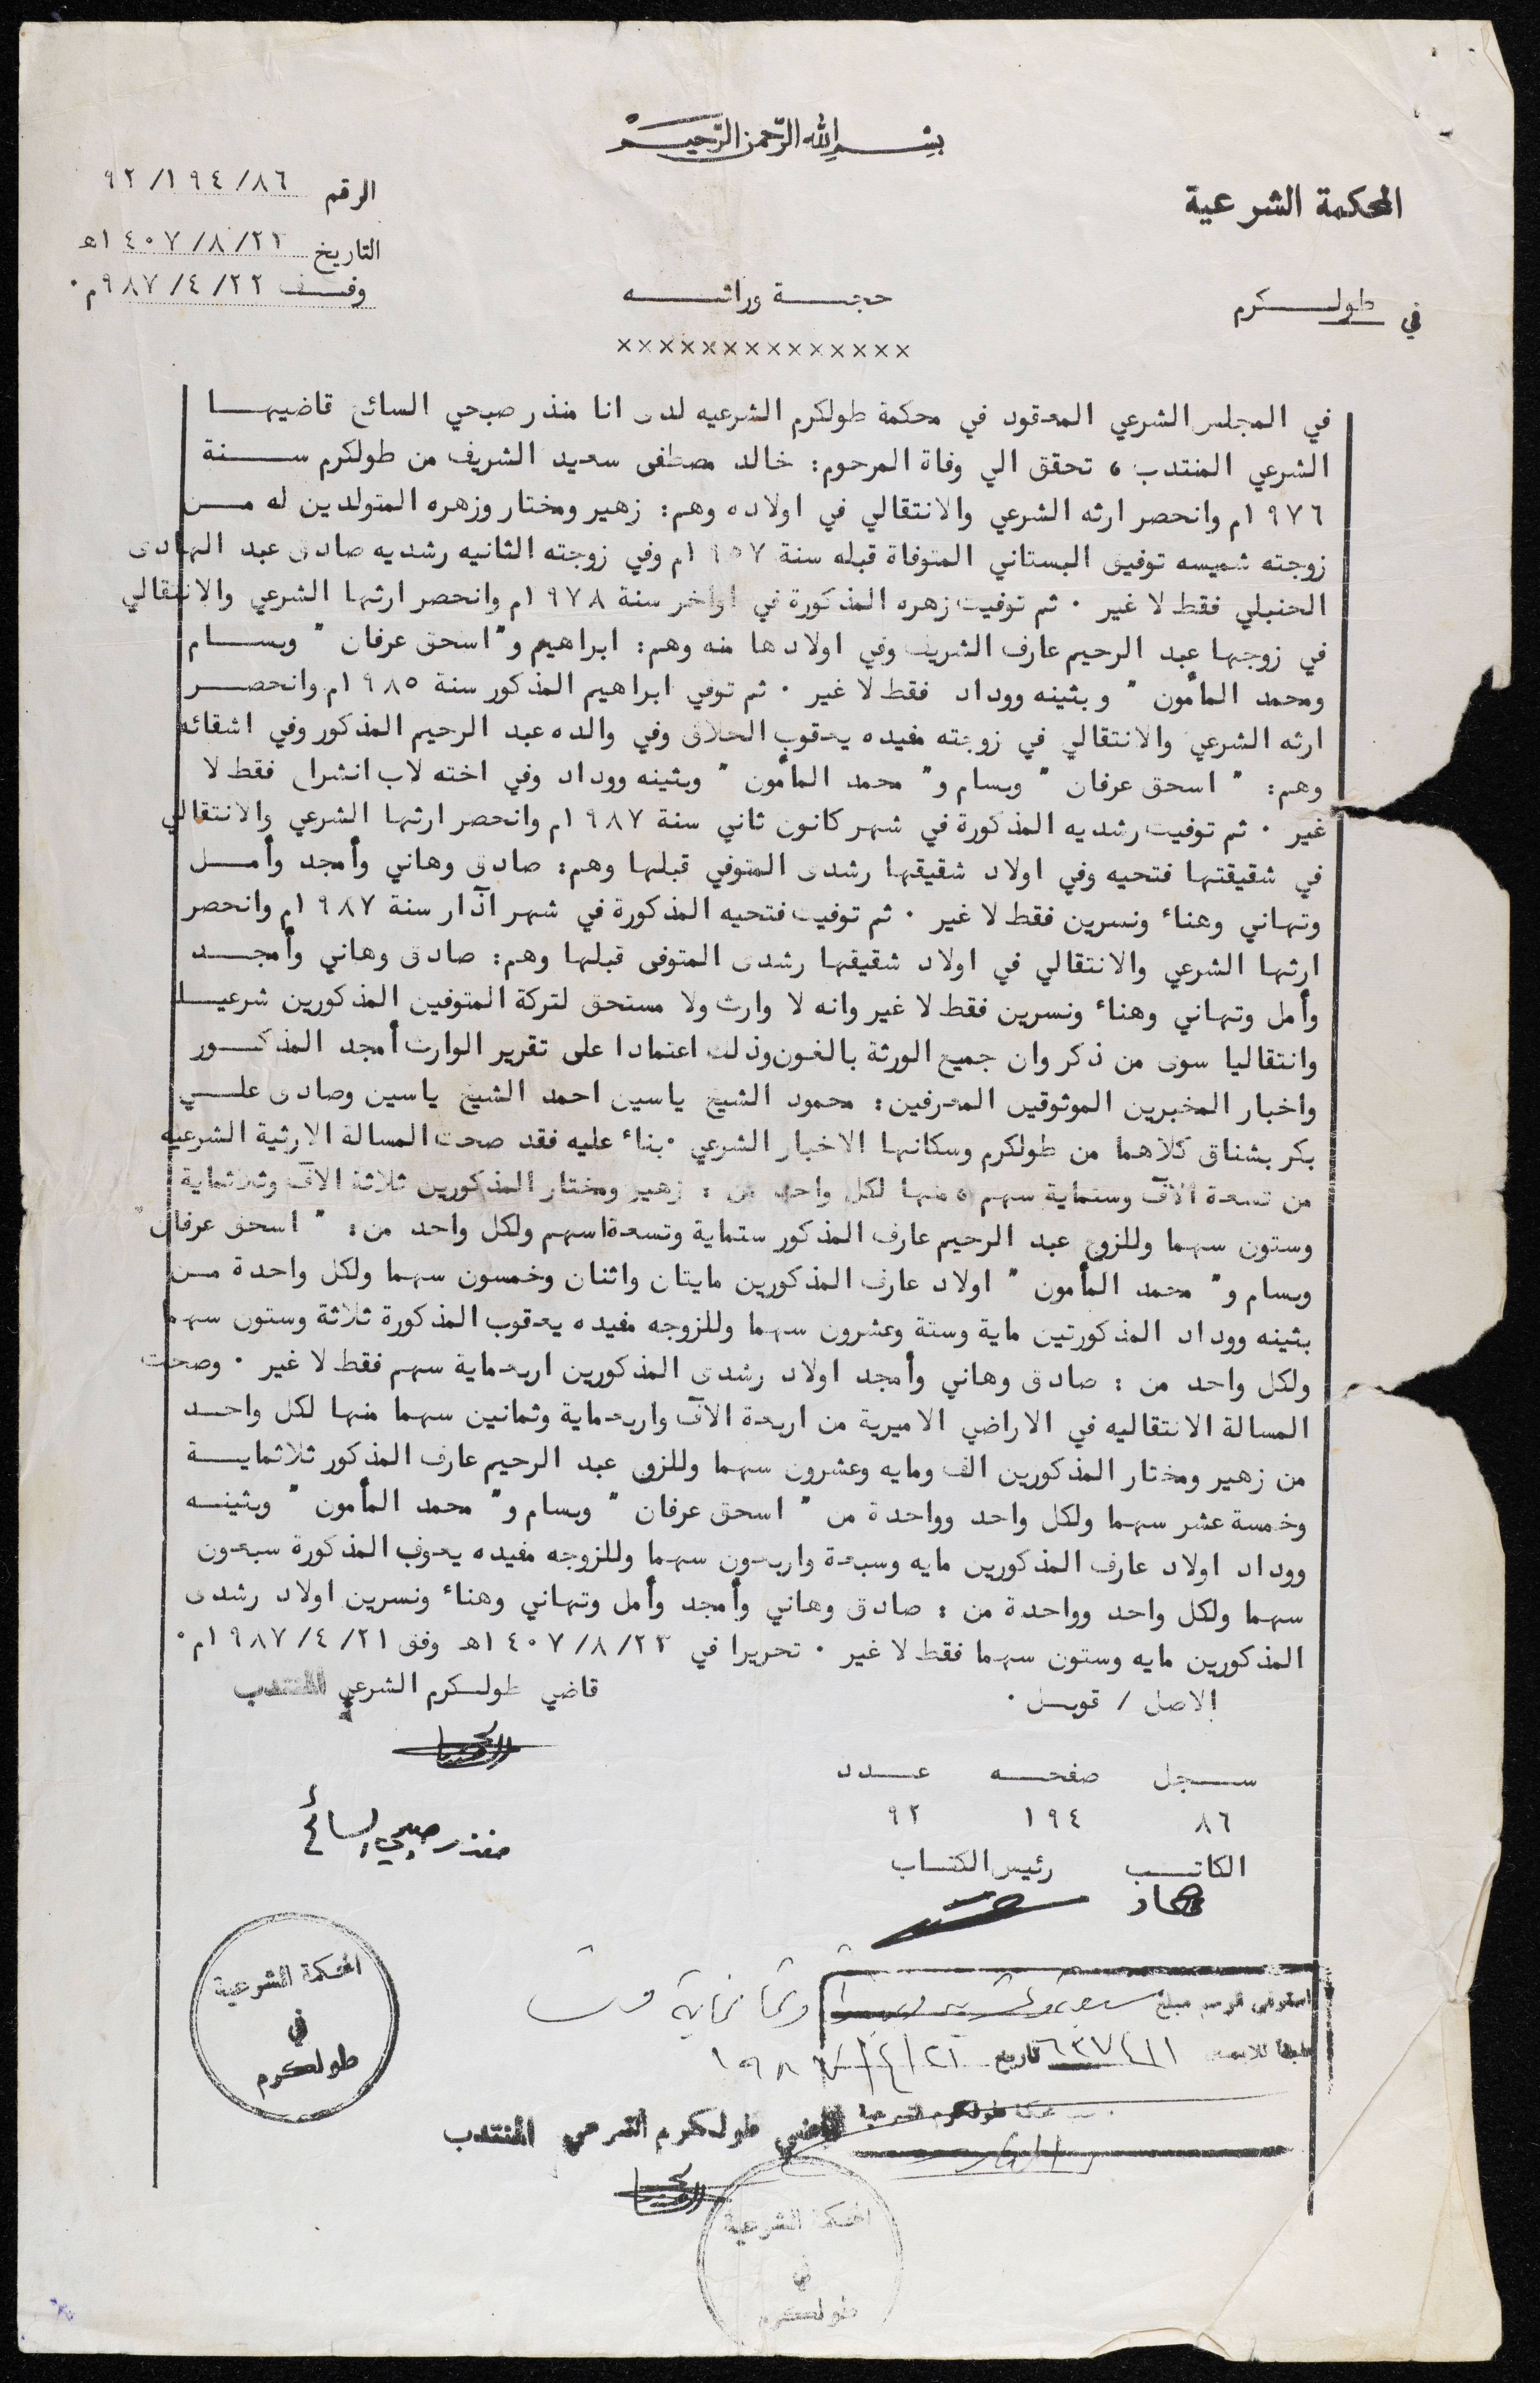 بسم الله الرحمن الرحيم
المحكمة الشرعية
الرقم ٩٢/١٩٤/٨٦
التاريخ ٢٣/٨/١٤٠٧هـ
وفـــق ٢٢/٤/٩٨٧م٠
في طولـــكرم
حجـــة وراثـــه
××××××××××××××
في المجلس الشرعي المعقود في محكمة طولكرم الشرعيه لدى انا منذر صبحي السائح قاضيهـــا
الشرعي المنتدب ، تحقق الي وفاة المرحوم: خالد مصطفى سعيد الشريف من طولكرم ســـنة
١٩٧٦م وانحصر ارثه الشرعي والانتقالي في اولاده وهم: زهير ومختار وزهره المتولدين له مـــن
زوجته شميسه توفيق البستاني المتوفاة قبله سنة ١٩٥٧م وفي زوجته الثانيه رشديه صادق عبد الهادى
الحنبلي فقط لا غير ٠ ثم توفيت زهره المذكورة في اواخر سنة ١٩٧٨م وانحصر ارثها الشرعي والانتقالي
في زوجها عبد الرحيم عارف الشريف وفي اولادها منه وهم: ابراهيم و"اسحق عرفان " وبســـام
ومحمد المأمون " وبثينه ووداد فقط لا غير ٠ ثم توفي ابراهيم المذكور سنة ١٩٨٥م وانحصـــر
ارثه الشرعي والانتقالي في زوجته مفيده يعقوب الحلاق وفي والده عبد الرحيم المذكور وفي اشقائه
وهم: " اسحق عرفان " وبسام و" محمد المأمون " وبثينه ووداد وفي اخته لاب انشراح فقط لا
غير ٠ ثم توفيت رشديه المذكورة في شهر كانون ثاني سنة ١٩٨٧م وانحصر ارثها الشرعي والانتقالي
في شقيقتها فتحيه وفي اولاد شقيقها رشدى المتوفي قبلها وهم: صادق وهاني وأمجد وأمـــل
وتهاني وهناء ونسرين فقط لا غير ٠ ثم توفيت فتحيه المذكورة في شهر آذار سنة ١٩٨٧م وانحصر
ارثها الشرعي والانتقالي في اولاد شقيقها رشدى المتوفى قبلها وهم: صادق وهاني وأمجـــد
وأمل وتهاني وهناء ونسرين فقط لا غير وانه لا وارث ولا مستحق لتركة المتوفين المذكورين شرعيـــا
وانتقاليا سوى من ذكر وان جميع الورثة بالغون وذلك اعتمادا على تقرير الوارث أمجد المذكـــور
واخبار المخبرين الموثوقين المعرفين: محمود الشيخ ياسين احمد الشيخ ياسين وصادق علـــي
بكر بشناق كلاهما من طولكرم وسكانها الاخبار الشرعي ٠بناء عليه فقد صحت المسالة الارثية الشرعيه
من تسعة الآف وستماية سهم ، منها لكل واحد من : زهير ومختار المذكورين ثلاثة الآف وثلاثماية
وستون سهما وللزوج عبد الرحيم عارف المذكور ستماية وتسعة اسهم ولكل واحد من: " اسحق عرفان"
وبسام و" محمد المأمون " اولاد عارف المذكورين مايتان واثنان وخمسون سهما ولكل واحدة مـــن
بثينه ووداد المذكورتين ماية وستة وعشرون سهما وللزوجه مفيده يعقوب المذكورة ثلاثة وستون سهما
ولكل واحد من : صادق وهاني وأمجد اولاد رشدى المذكورين اربعماية سهم فقط لا غير ٠ وصحت
المسالة الانتقاليه في الاراضي الاميرية من اربعة الآف واربعماية وثمانين سهما منها لكل واحـــد
من زهير ومختار المذكورين الف ومايه وعشرون سهما وللزوج عبد الرحيم عارف المذكور ثلاثمايـــة
وخمسة عشر سهما ولكل واحد وواحدة من " اسحق عرفان " وبسام و" محمد المأمون " وبثينـــه
ووداد اولاد عارف المذكورين مايه وسبعة واربعون سهما وللزوجه مفيده يعوب المذكورة سبعون
سهما ولكل واحد وواحدة من : صادق وهاني وأمجد وأمل وتهاني وهناء ونسرين اولاد رشدى
المذكورين مايه وستون سهما فقط لا غير ٠ تحريرا في ٢٣/٨/١٤٠٧هـ وفق ٢١/٤/١٩٨٧م٠
الاصل / قوبـــل ٠
قاضي طولـــكرم الشرعي المنتدب
ســـجل صفحـــه عـــدد
٨٦ ١٩٤ ٩٢
منذر صبحي السائح
الكاتـــب رئيس الكتـــاب
المحكمة الشرعية
في
طولكرم
استوفى الرسم مبلغ وثمانماية فلس
٦٣٧٤١١ تاريخ ٢١/٤/١٩٨٧
محكمة طولكرم الشرعية
قاضي طولكرم الشرعي المنتدب
المحكمة الشرعية
في
طولكرم